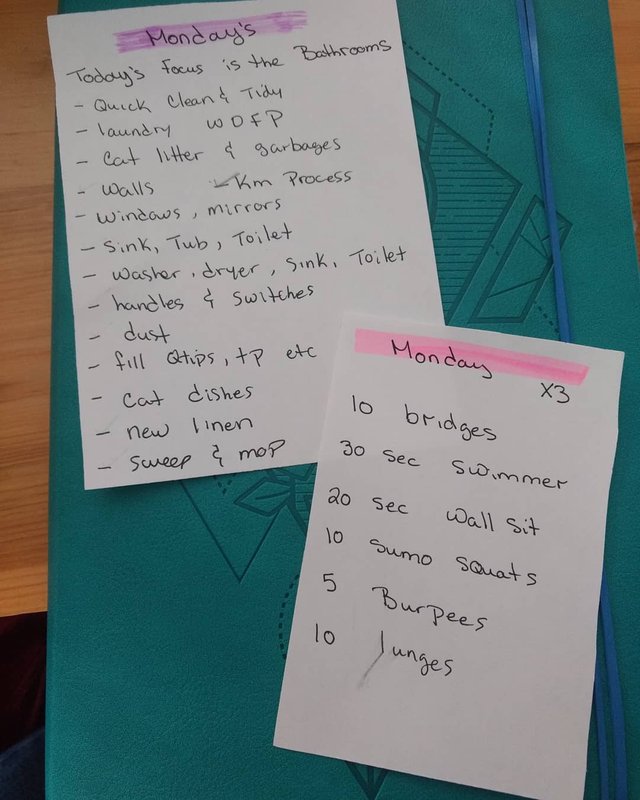 Monday's
Today's Focus is the Bathrooms
- Quick Clean & Tidy
- laundry W D F P
- Cat litter & garbages
- Walls Km Process
- windows, mirrors
- Sink, Tub, Toilet
- Washer, dryer, Sink, Toilet
- handles & switches
- dust
- fill Qtips, tp etc
- Cat dishes
- new linen
- sweep & mop
Monday
X3
10 bridges
30 sec swimmer
20 sec wall sit
10 sumo squats
5 Burpees
10 lunges